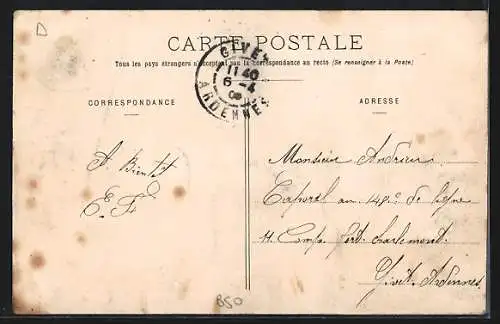 D
CARTE POSTALE
Tous les pays étrangers n'acceptent pas la correspondance au recto (Se renseigner à la Poste)
GIVET
11 40
6 - 4
08
ARDENNES
CORRESPONDANCE
A Bientot
E. F
ADRESSE
Monsieur Andrieu
Caporal au 148e de ligne
11. Comp. fort charlemont.
Givet. Ardennes.
850